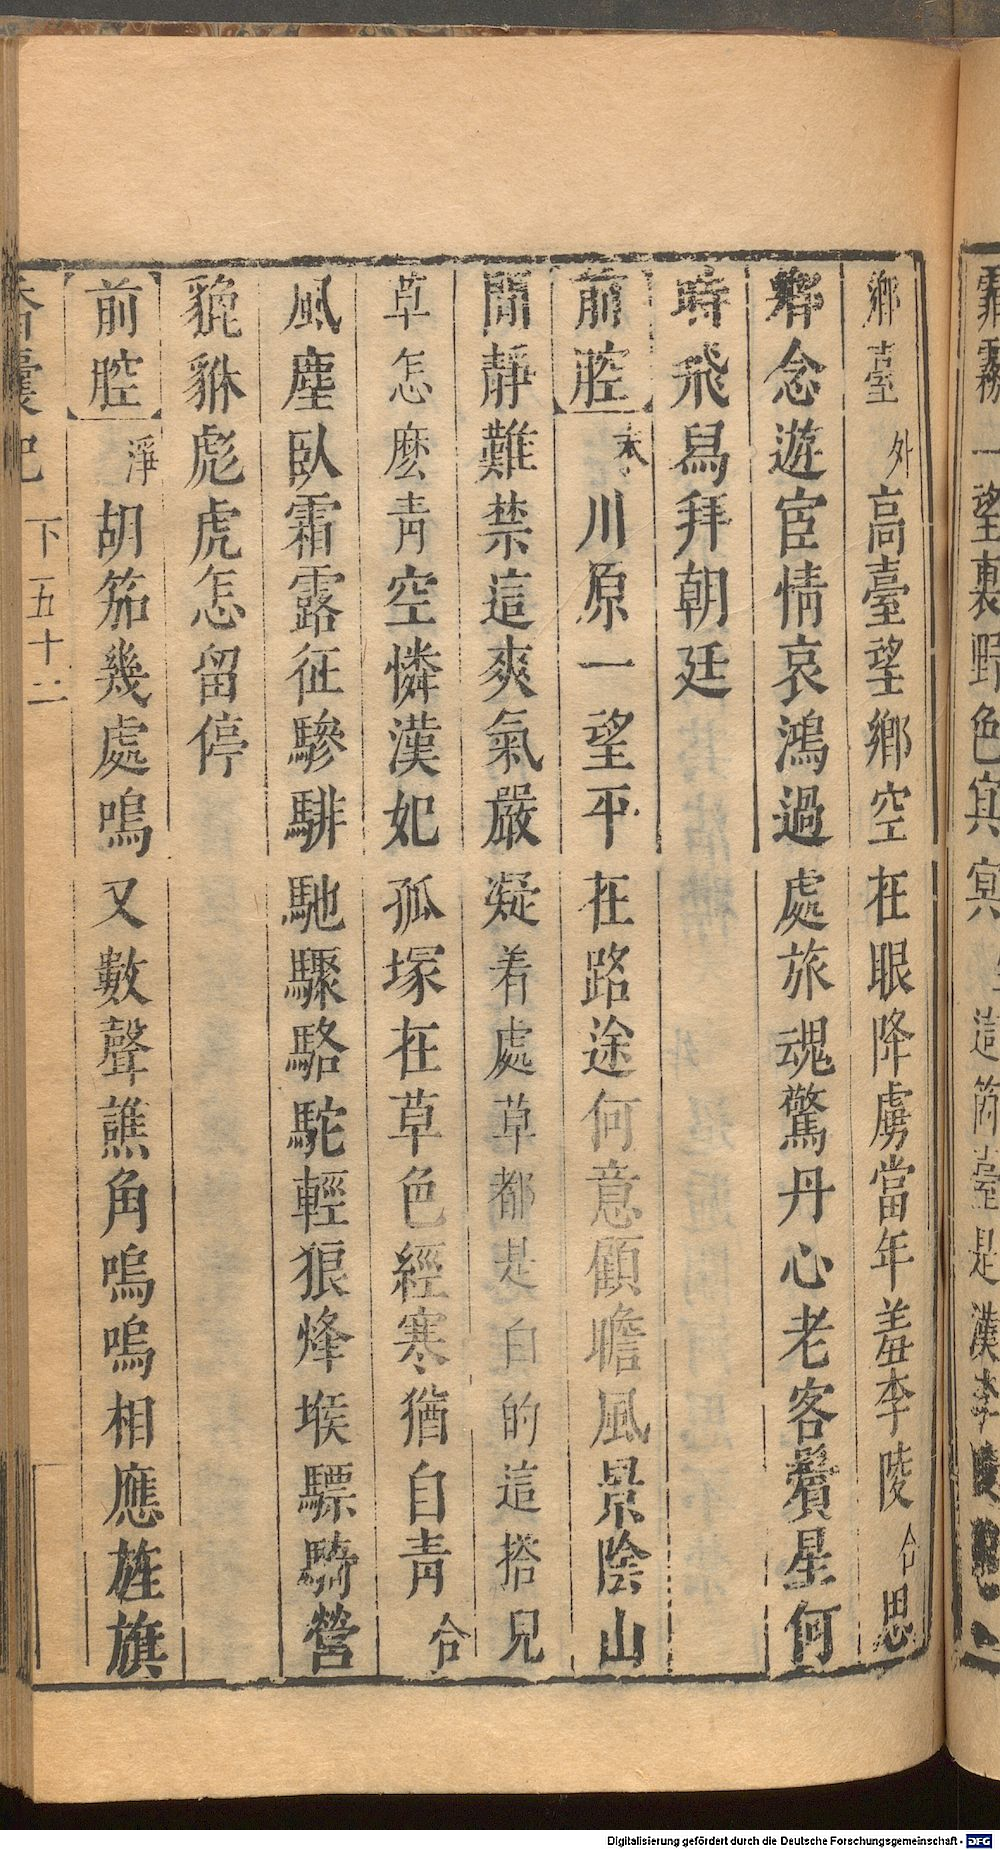 霏霧一望裏野色冥冥這箇臺是漢李陵
鄉臺 外 高臺望鄉空在眼降虜當年羞李陵 合 思
鄉念遊宦情哀鴻過處旅魂驚丹心老客鬢星何
時飛舄拜朝廷
前腔 末 川原一望平在路途何意顧瞻風景陰山
閒靜難禁這爽氣嚴凝着處草都是白的這搭兒
草怎麽青空憐漢妃孤塚在草色經寒猶自青 合
風塵臥霜露征驂騑馳驟駱駝輕狼烽堠驃騎營
貔貅彪虎怎留停
前腔 淨 胡笳幾處鳴又數聲譙角嗚嗚相應旌旗
香囊記 下五十二
Digitalisierung gefördert durch die Deutsche Forschungsgemeinschaft - DFG